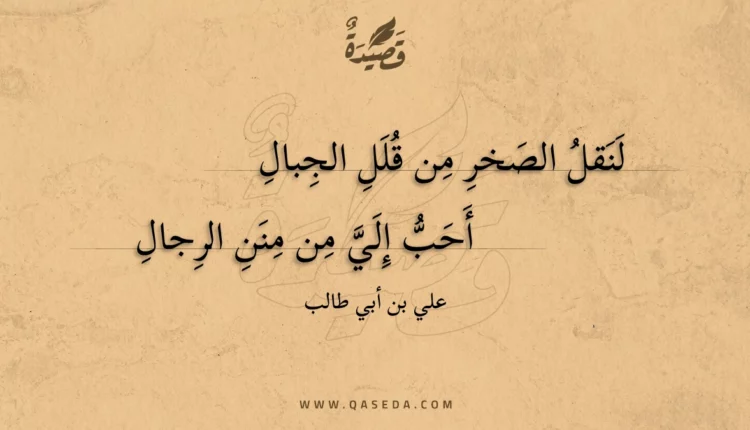 قَصِيدَةٌ
لَنَقلُ الصَخرِ مِن قُلَلِ الجِبالِ
أَحَبُّ إِلَيَّ مِن مِنَنِ الرِجالِ
علي بن أبي طالب
WWW.QASEDA.COM